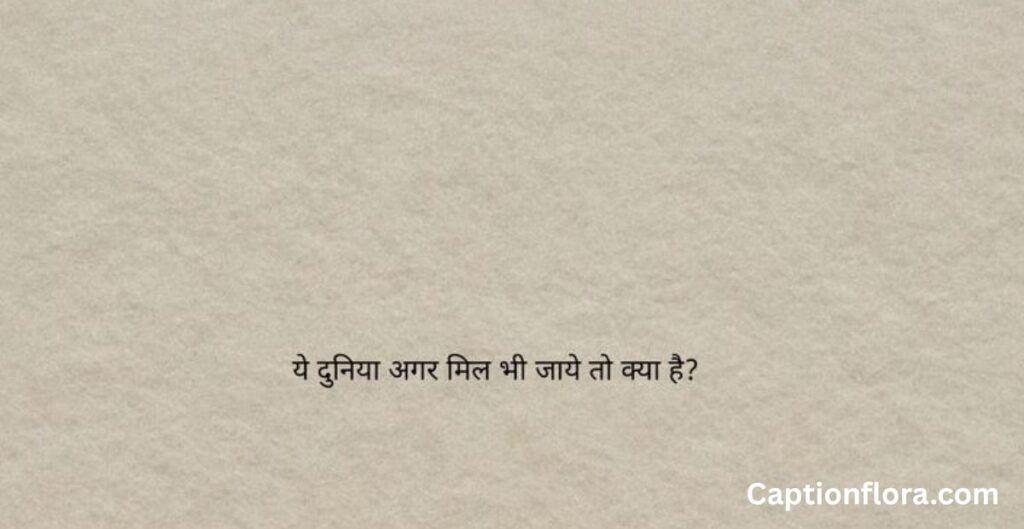 ये दुनिया अगर मिल भी जाये तो क्या है?
Captionflora.com